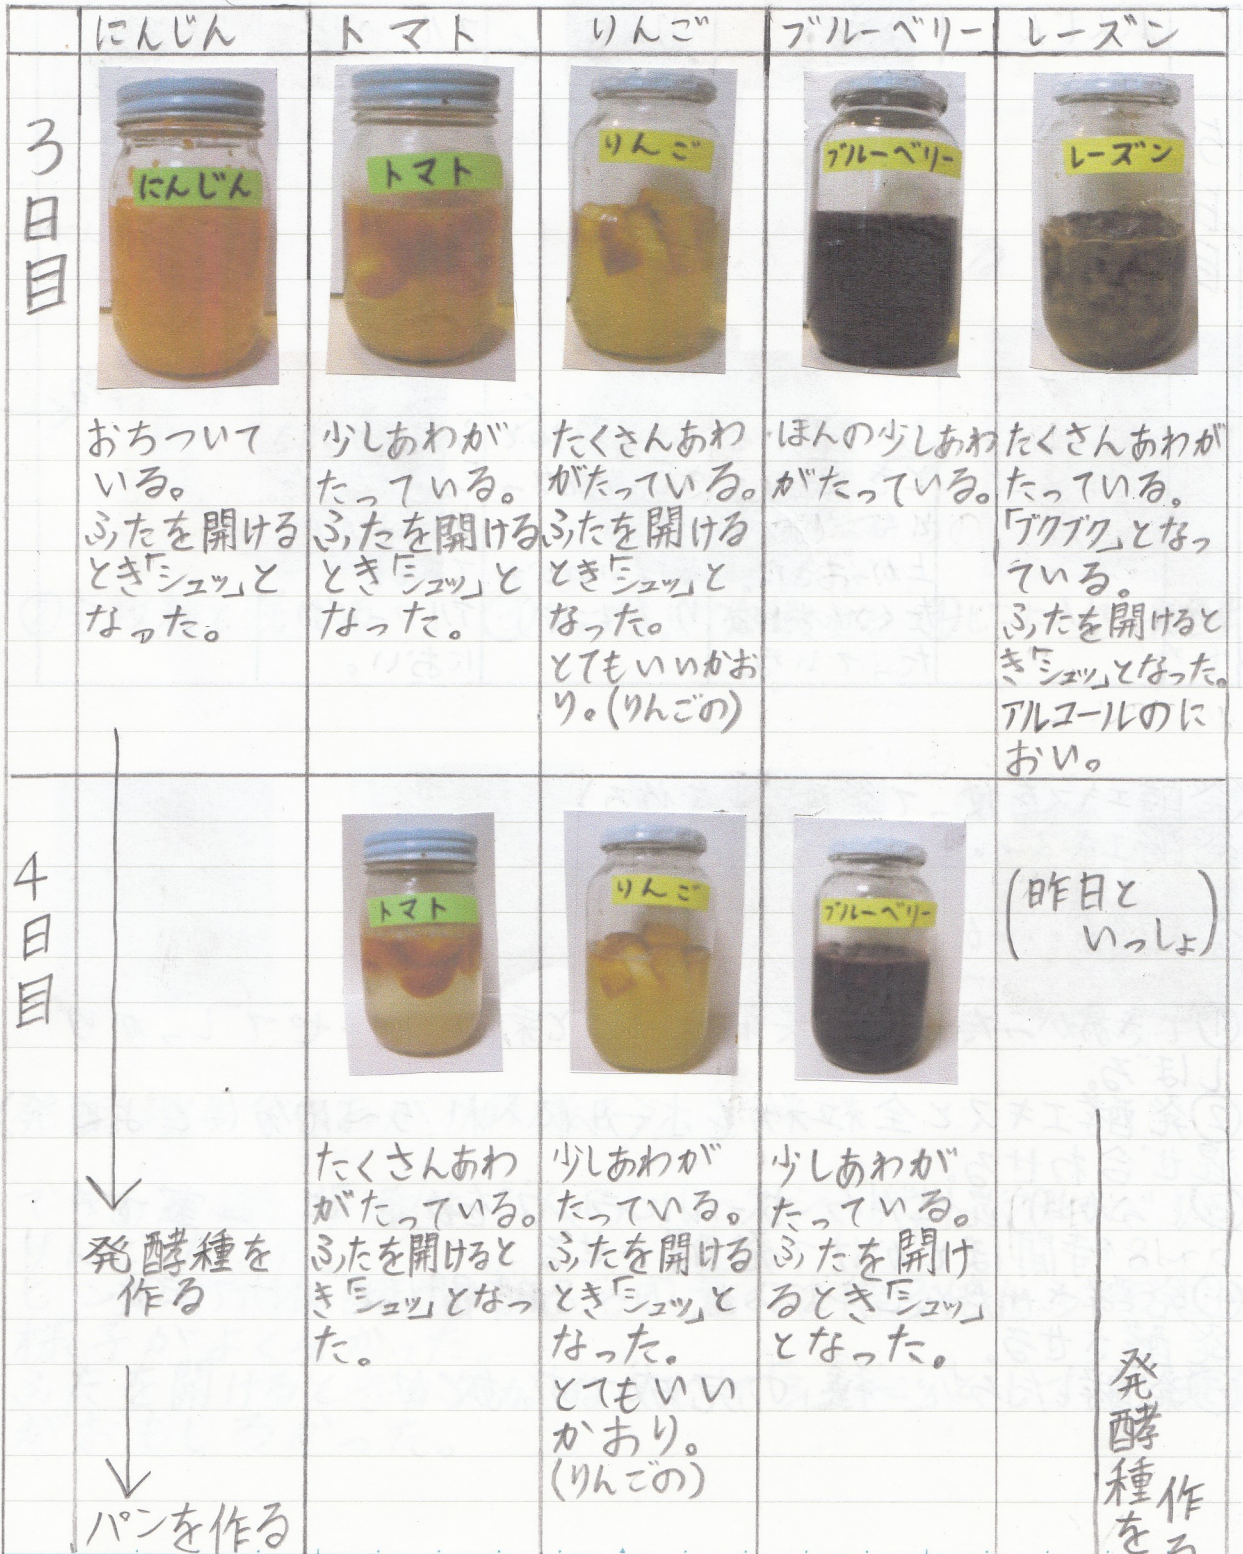 にんじん
トマト
りんご
ブルーベリー
レーズン
3日目
にんじん
トマト
りんご
ブルーベリー
レーズン
おちついて
いる。
ふたを開ける
とき「シュッ」と
なった。
少しあわが
たっている。
ふたを開ける
とき「シュッ」と
なった。
たくさんあわ
がたっている。
ふたを開ける
とき「シュッ」と
なった。
とてもいいかお
り。(りんごの)
ほんの少しあわ
がたっている。
たくさんあわが
たっている。
「ブクブク」となっ
ている。
ふたを開けると
き「シュッ」となった。
アルコールのに
おい。
4日目
発酵種を
作る
パンを作る
トマト
たくさんあわ
がたっている。
ふたを開けると
き「シュッ」となっ
た。
りんご
少しあわが
たっている。
ふたを開ける
とき「シュッ」と
なった。
とてもいい
かおり。
(りんごの)
ブルーベリー
少しあわが
たっている。
ふたを開け
るとき「シュッ」
となった。
(昨日と
いっしょ)
発酵種を
作る